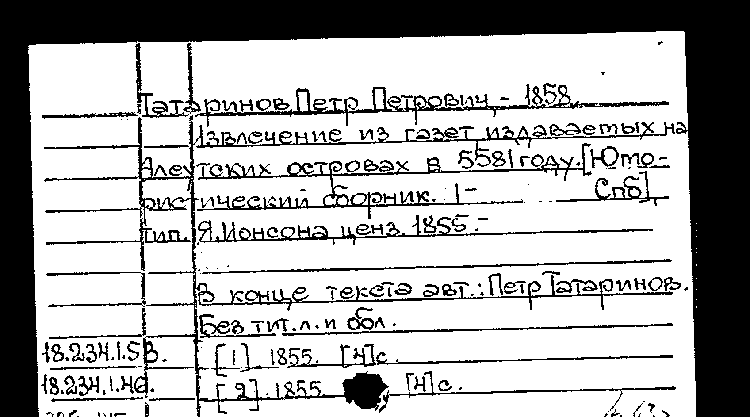 Татаринов, Петр Петрович, - 1858.
Извлечение из газет, издаваемых на
Алеутских островах в 5581 году. [Юмо-
ристический сборник. 1- Спб],
тип. Я. Ионсона, ценз. 1855.-
В конце текста авт.: Петр Татаринов.
Без тит. л. и обл.
18.234.1.5В. [1]. 1855. [4]с.
18.234.1.4 [2]. 1855. [4]с.